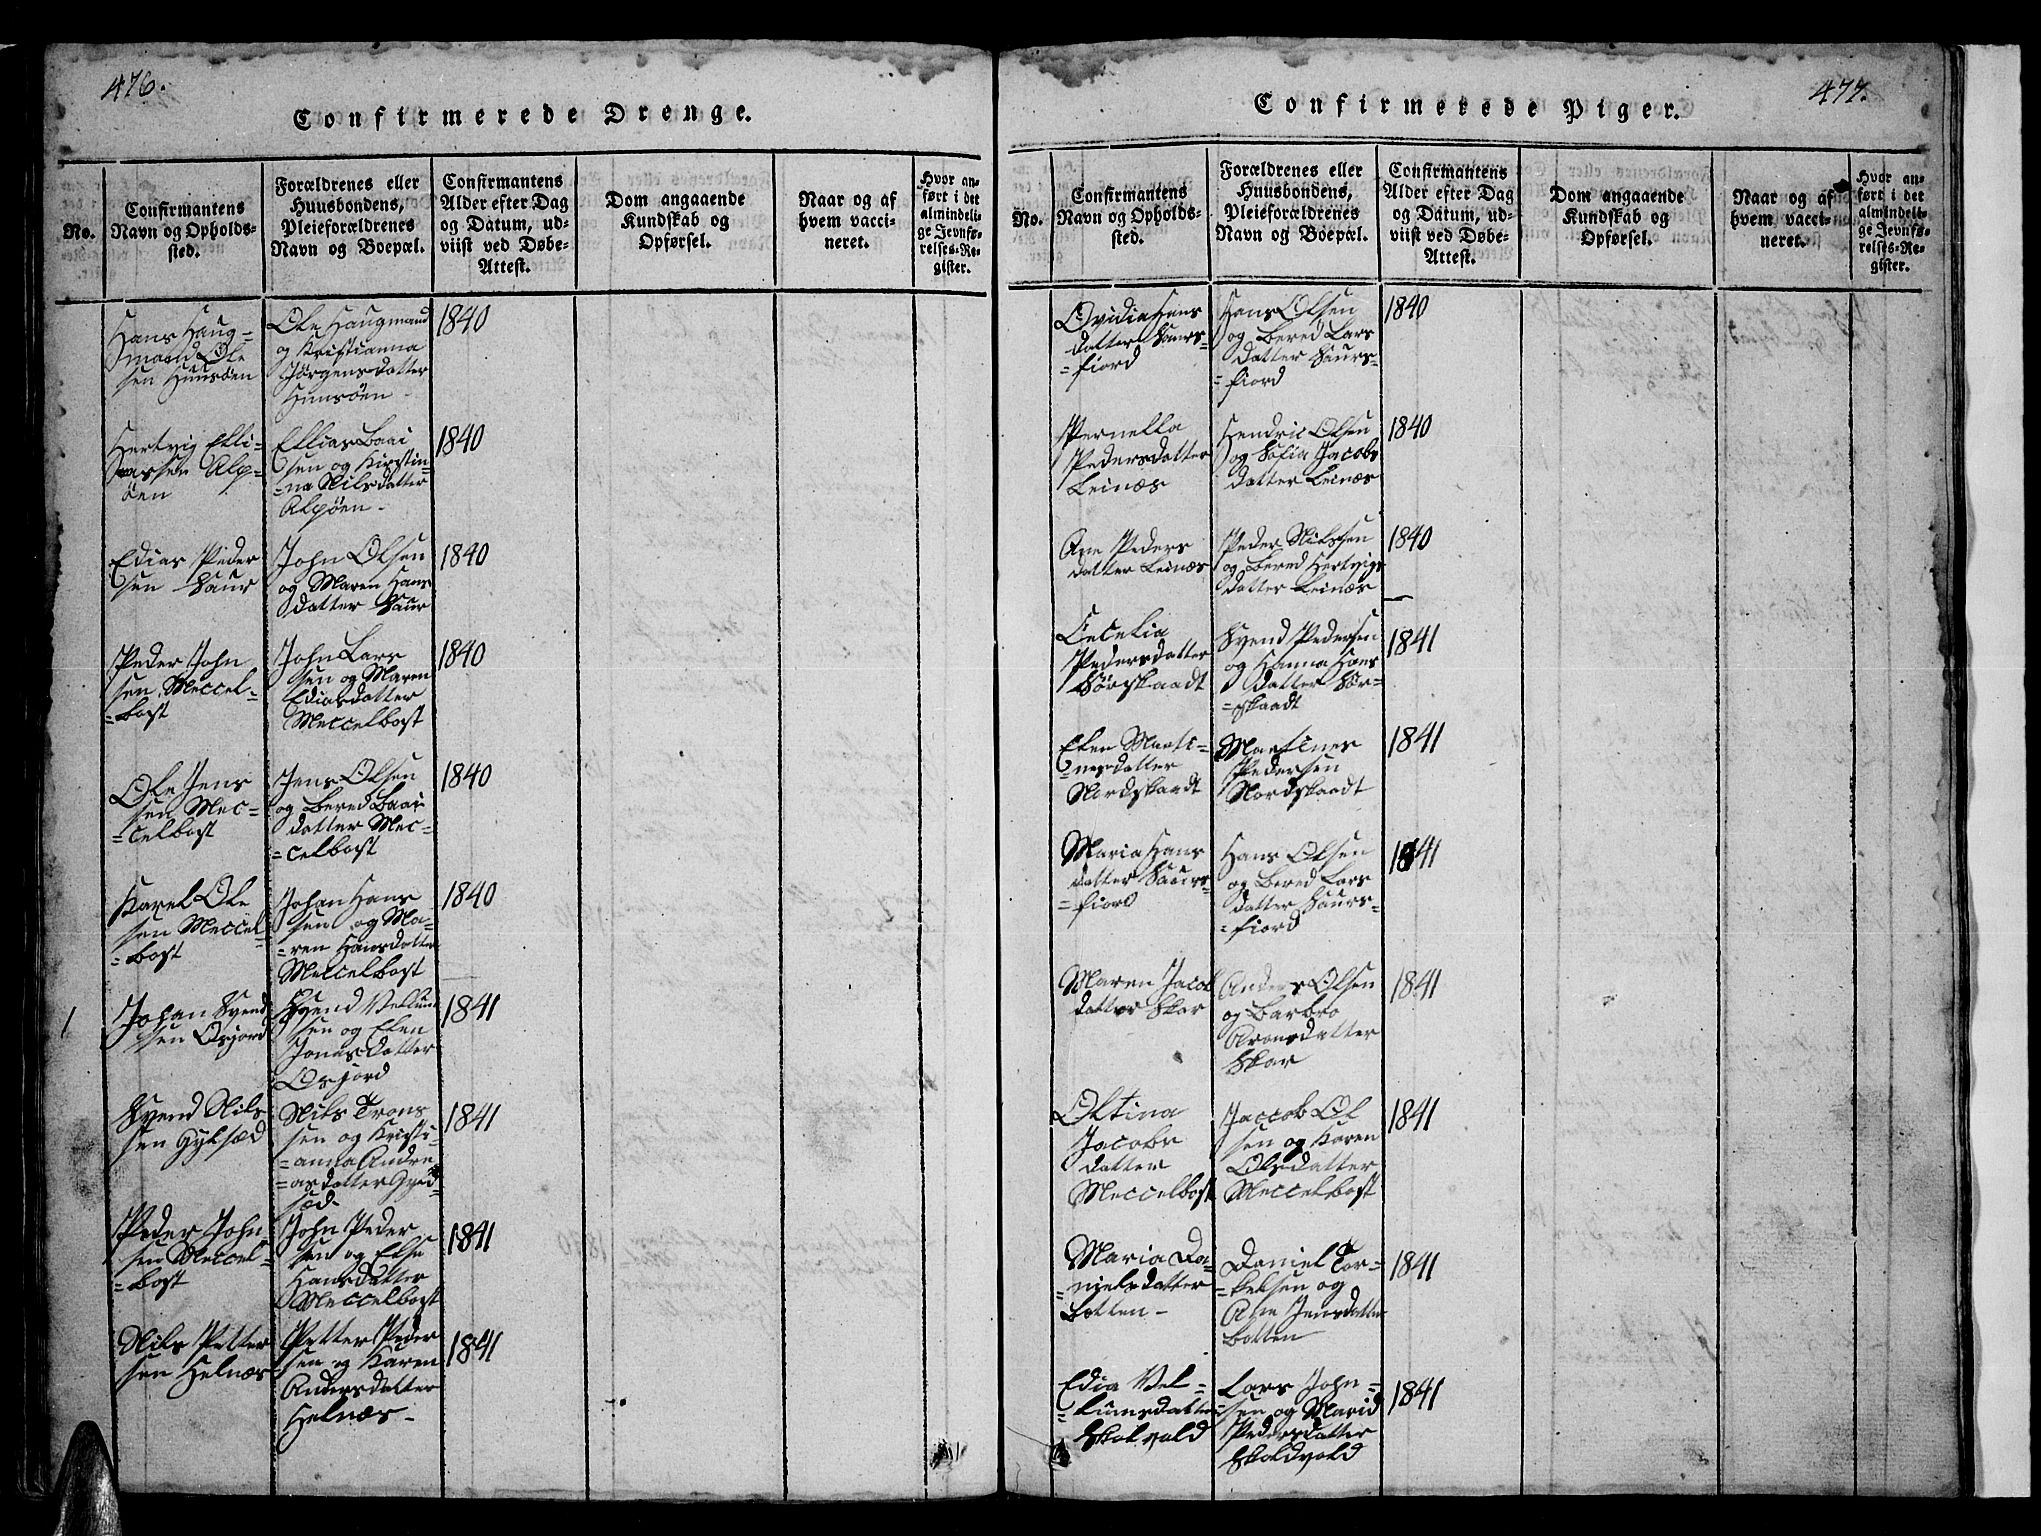 476.
Confirmerede Drenge.
No.
Confirmantens
Navn og Opholds-
sted.
Forældrenes eller
Huusbondens,
Pleieforældrenes
Navn og Boepæl.
Confirmantens
Alder efter Dag
og Datum, ud-
viist ved Døbe-
Attest.
Dom angaaende
Kundskab og
Opførsel.
Naar og af
hvem vacci-
neret.
Hvor an-
ført i det
almindeli-
ge Jevnfø-
relses-Re-
gister.
Hans Haug=
mand Ole
sen Hunsöen
Ole Haugmand
og Kristianna
Jörgensdatter
Hunsöen -
1840
Hertvig Elli=
assen Alp=
öen
Ellias Baai
sen og Kirstin=
=na Nilsdatter
Alpöen -
1840
Edias Peder
sen Saur
John Olsen
og Maren Hans
datter Saur
1840
Peder John
sen Meccel=
=bost
John Lars
sen og Maren
Ediasdatter
Meccelbost
1840
Ole Jens
sen Mec=
=celbost
Jens Olsen
og Bered Baai
datter Mec=
=celbost
1840
Karel Ole
sen Meccel=
=bost
Johan Hans
sen og Ma=
=ren Hansdatter
Meccelbost
1840
1
Johan Svend
sen Osjord
Svend Vellum
sen og Elen
Jonasdatter
Osjord
1841
Svend Nils
sen Gylsæd
Nils Trons
sen og Kristi=
=anna Andre
=asdatter
sæd
1841
Peder John
sen Meccel=
=bost
John Peder
sen og Else
Hansdatter
Meccelbost
1841
Nils Petter
sen Helnæs
Petter Peder
sen og Karen
Andersdatter
Helnæs -
1841
477.
Confirmerede Piger.
No.
Confirmantens
Navn og Opholds-
sted.
Forældrenes eller
Huusbondens,
Pleieforældrenes
Navn og Boepæl.
Confirmantens
Alder efter Dag
og Datum, ud-
viist ved Døbe-
Attest.
Dom angaaende
Kundskab og
Opførsel.
Naar og af
hvem vacci-
neret.
Hvor an-
ført i det
almindeli-
ge Jevnfø-
relses-Re-
gister.
Ovidia Hans
datter Saurs=
=fiord
Hans Olsen
og Bered Lars
datter Saurs=
=fiord
1840
Pernella
Pedersdatter
Leinæs
Hendric Olsen
og Sofia Jacobs
datter Leinæs
1840
Ane Peders
datter Leinæs
Peder Nilssen
og Bered Hertvigs
datter Leinæs
1840
Cecelia
Pedersdatter
Sörskaadt
Svend Pedersen
og Hanna Hans
datter Sör=
=skaadt
1841
Elen Marti=
=nesdatter
Nordskaadt
Martines
Pedersen
Nordskaadt
1841
Maria Hans
datter Saurs=
=fiord
Hans Olsen
og Bered Lars
datter Saurs=
=fiord
1841
Maren Jacob
datter Skar
Anders Olsen
og Barbro
Aronsdatter
Skar
1841
Oltina
Jacobs
datter
Meccelbost
Jaccob Ol
sen og Karen
Olsdatter
Meccelbost
1841
Maria Da=
=nielsdatter
Botten -
Daniel Tor=
=kelsen og
Ane Jensdatter
Botten
1841
Edia Vel=
=lumsdatter
Skolvold
Lars John=
=sen og Marid
Pedersdatter
Skoldvold
1841